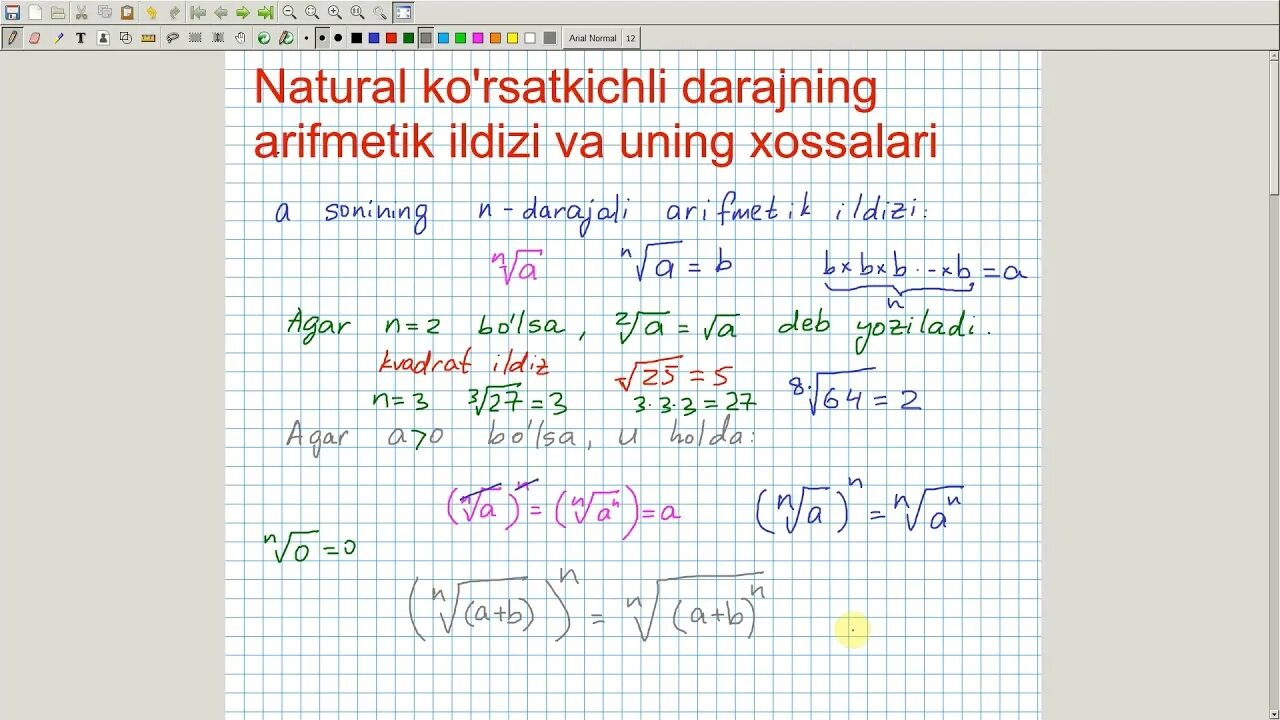 Arial Normal 12
Natural ko'rsatkichli darajning
arifmetik ildizi va uning xossalari
a sonining n-darajali arifmetik ildizi:
ⁿ√a ⁿ√a = b b×b×b··-×b = a
n
Agar n=2 bo'lsa, ²√a = √a deb yoziladi.
kvadrat ildiz √25 = 5
n=3 ³√27 = 3 3·3·3=27 ⁸√64 = 2
Agar a>0 bo'lsa, u holda:
(ⁿ√a)ⁿ = (ⁿ√aⁿ) = a (ⁿ√a)ⁿ = ⁿ√aⁿ
ⁿ√0 = 0
(ⁿ√(a+b))ⁿ = ⁿ√(a+b)ⁿ